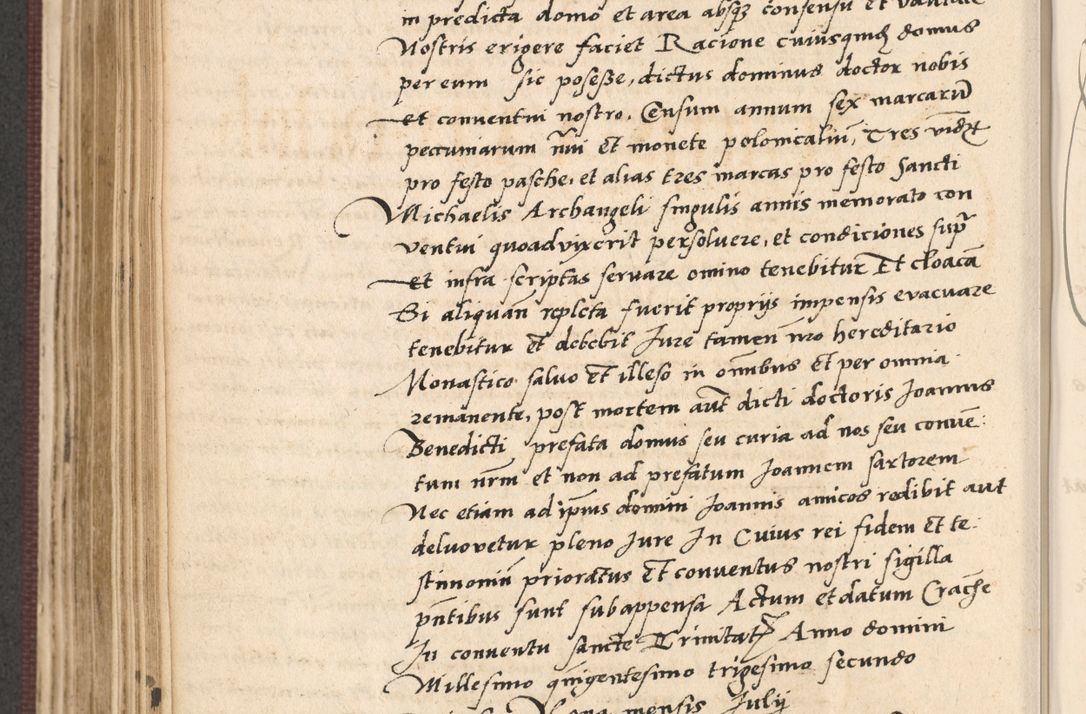 in predicta domo et area absqz consensu et voluntate
Nostris erigere faciet Racione cuiusquidem domus
per eum sic posesse, dictus dominus doctor nobis
et conventui nostro. Censum annum sex marcarum
peccuniarum nui et monete polonicalium, Tres videlicet
pro festo pasche, et alias tres marcas pro festo Sancti
Michaelis Archangeli singulis annis memorato con
ventui quoad vixerit persoluere, et condiciones supra
et infra scriptas servare omino tenebitur Et cloacam
Si aliquam repleta fuerit proprijs impensis evacuare
tenebitur Et debebit Jure tamen nro hereditario
Monastico salvo Et illeso in omnibus Et per omnia
remanente, post mortem aut dicti doctoris Joannis
Benedicti prefata domus seu curia ad nos seu conve:
tum nrm et non ad prefatum Joannem sartorem
Nec etiam ad ipsius domini Joannis amicos redibit aut
deluovetur pleno Jure In Cuius rei fidem Et te:
stimonium prioratus Et conventus nostri sigilla
pntibus sunt subappensa Actum et datum Cracche
In conventu sancte Trinitatis Anno domini
Millesimo quigentesimo trigesimo secundo
mensis Julij